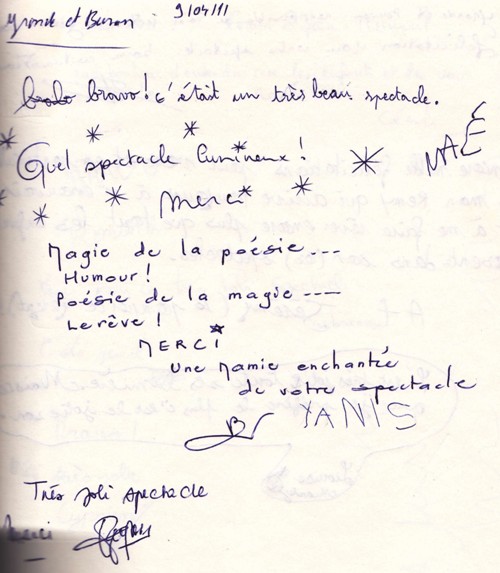 9/04/11
bravo! c'était un très beau spectacle.
NAÉ
Quel spectacle lumineux!
merci
Magie de la poésie ---
Humour!
Poésie de la magie ---
Le rêve!
MERCI
Une Mamie enchantée
de votre spectacle
YANIS
Très joli spectacle
Merci